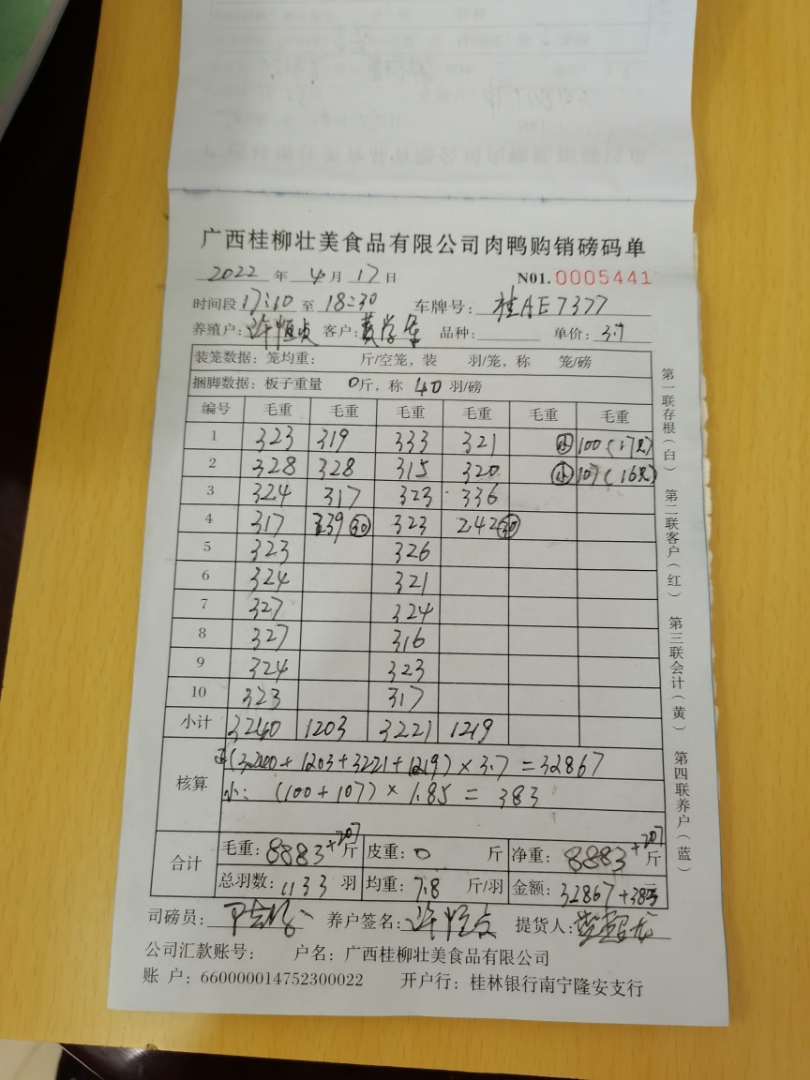 广西桂柳壮美食品有限公司肉鸭购销磅码单
2022 年 4 月 17 日 N01. 0005441
时间段 17:10 至 18:30 车牌号: 桂AE7377
养殖户: 许恒贞 客户: 品种: 单价: 3.7
装笼数据: 笼均重: 斤/空笼, 装 羽/笼, 称 笼/磅
捆脚数据: 板子重量 0斤, 称 40 羽/磅
编号 毛重 毛重 毛重 毛重 毛重 毛重
1 323 319 333 321 小 100 (17只)
2 328 328 315 320 小 107 (16只)
3 324 317 323 336
4 317 239 30 323 242 30
5 323 326
6 324 321
7 327 324
8 327 316
9 324 323
10 323 317
小计 3240 1203 3221 1219
核算 正(3240+1203+3221+1219)×3.7=32867
小: (100+107)×1.85=383
合计 毛重: 8883+207斤 皮重: 0 斤 净重: 8883+207斤
总羽数: 1133 羽 均重: 7.8 斤/羽 金额: 32867+383
司磅员: 养户签名: 许恒贞 提货人:
公司汇款账号: 户名: 广西桂柳壮美食品有限公司
账 户: 660000014752300022 开户行: 桂林银行南宁隆安支行
第一联存根(白) 第二联客户(红) 第三联会计(黄) 第四联养户(蓝)